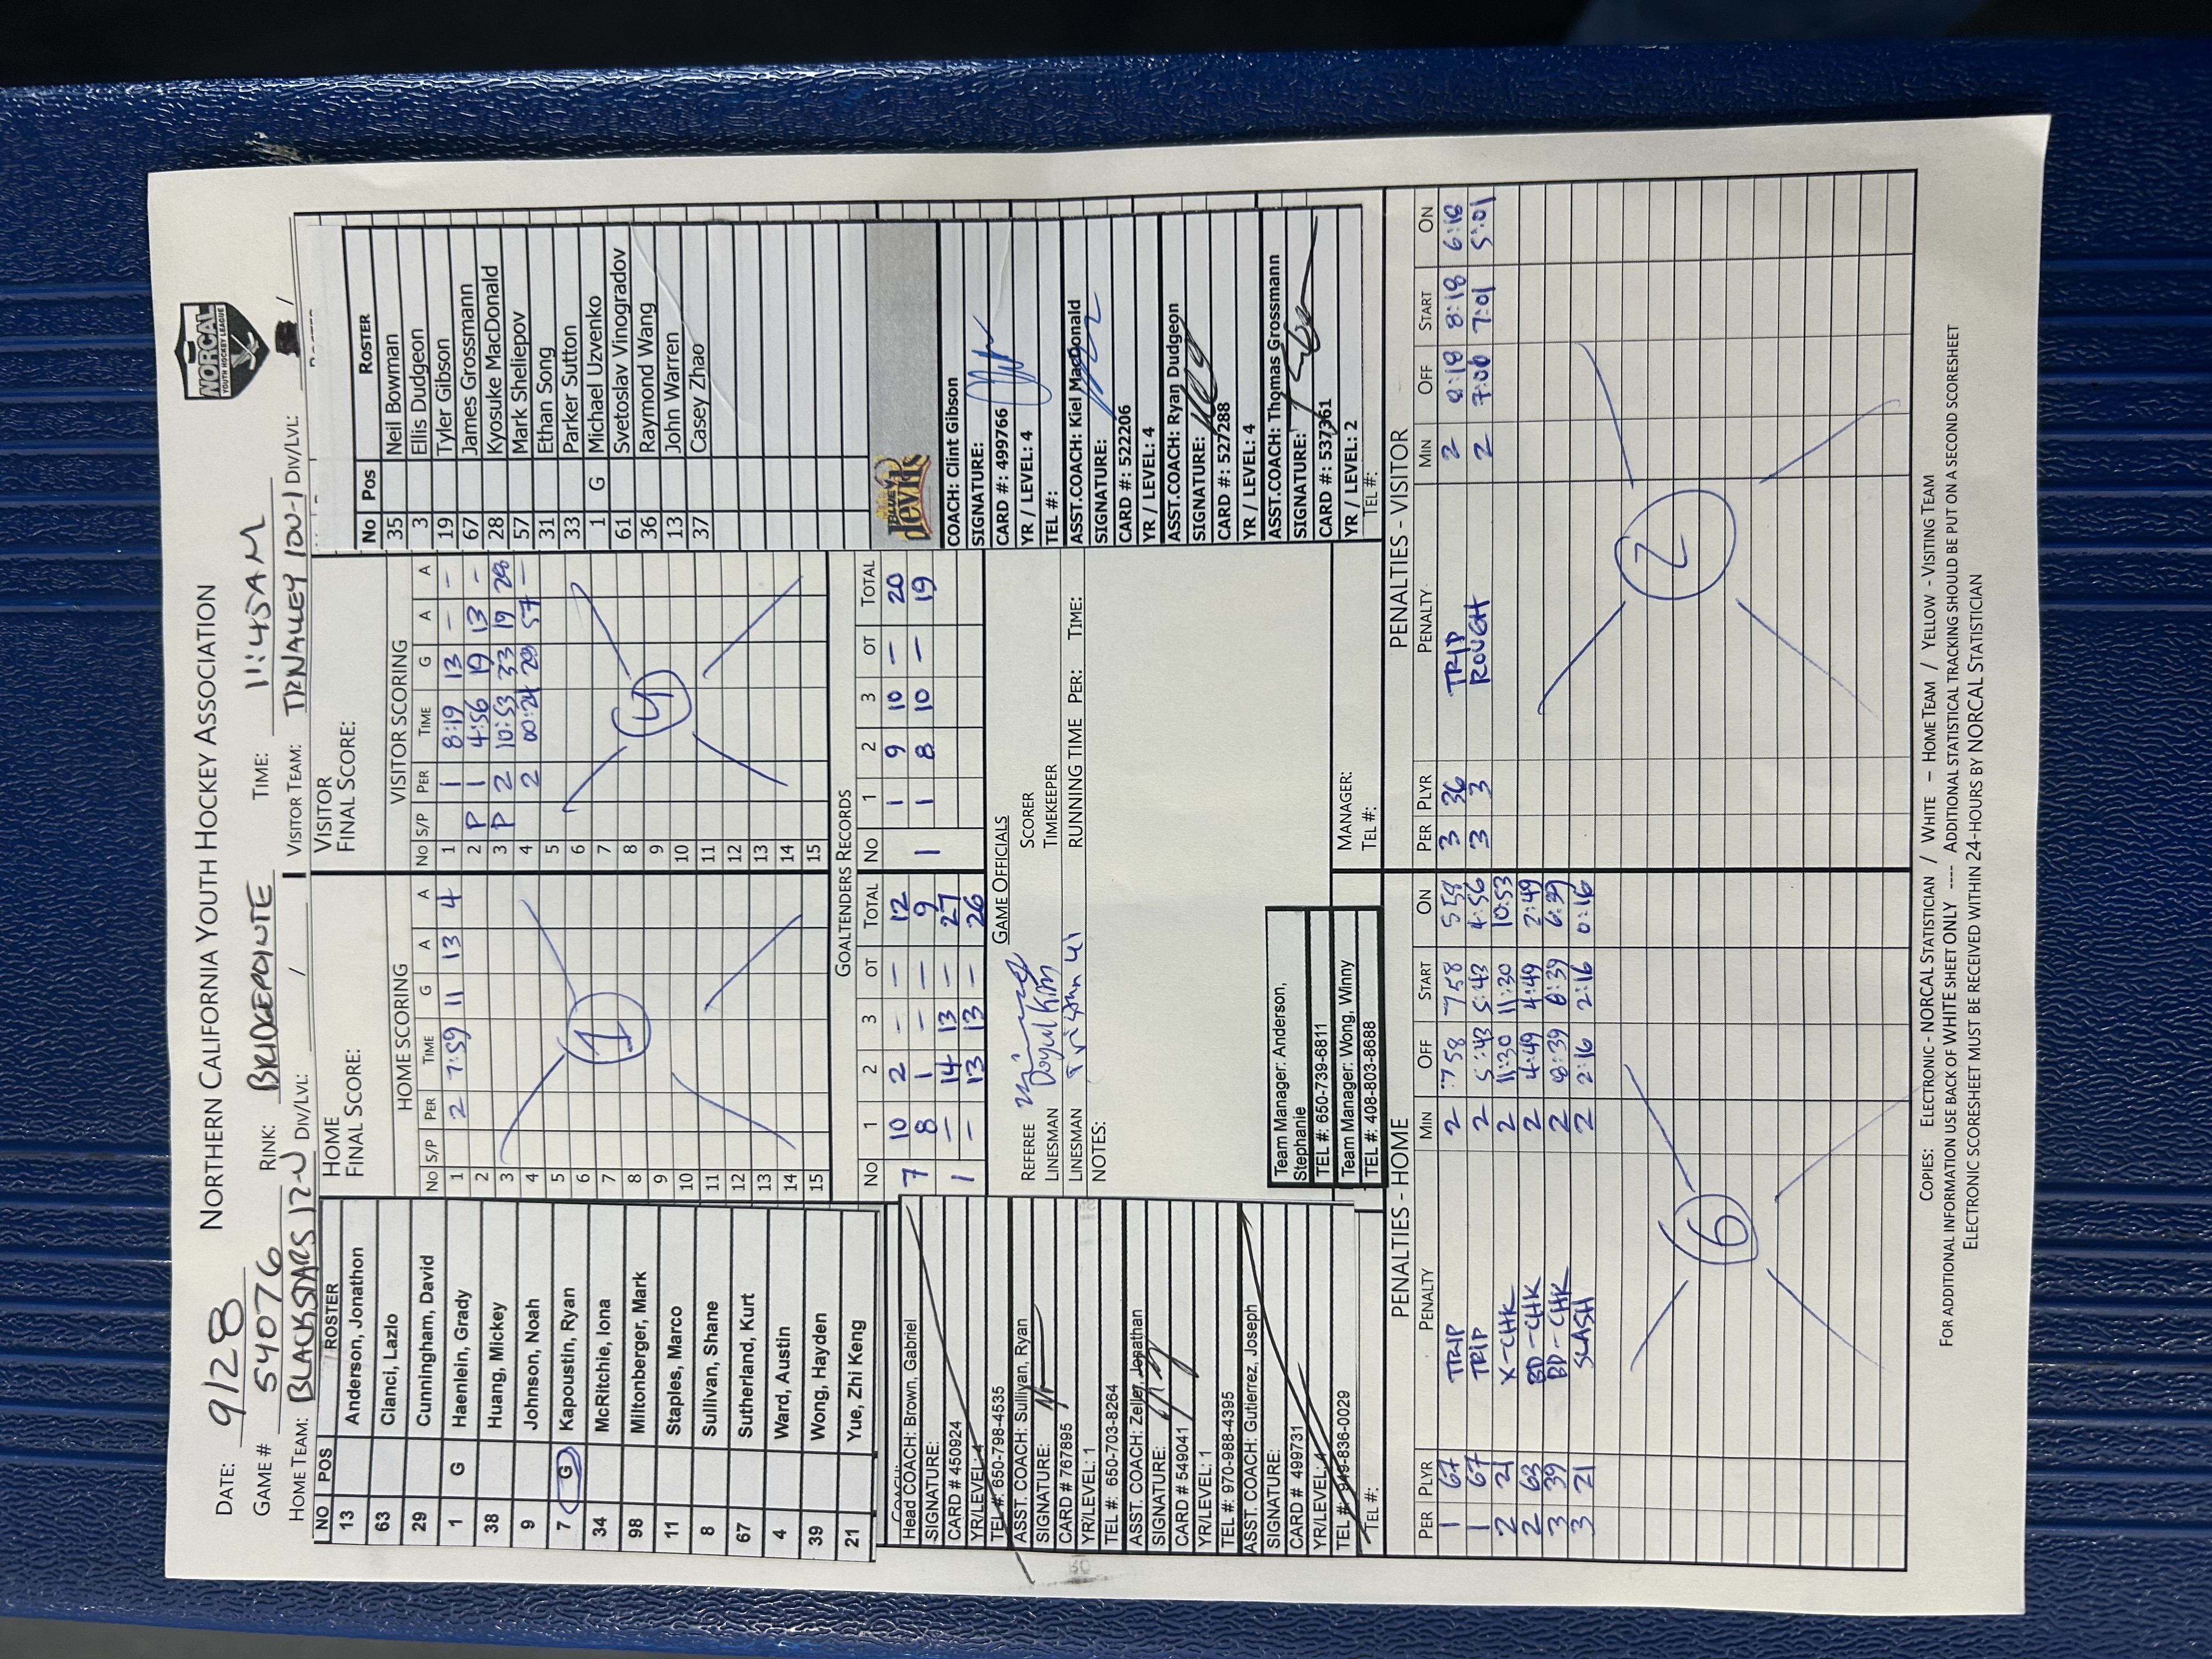 NORTHERN CALIFORNIA YOUTH HOCKEY ASSOCIATION
NORCAL
YOUTH HOCKEY LEAGUE
DATE: 9/28
GAME # 54076 RINK: BRIDGEPOINTE TIME: 11:45AM
HOME TEAM: BLACKSTARS 12-U DIV/LVL: / VISITOR TEAM: TRIVALLEY 10U-1 DIV/LVL: /
NO POS ROSTER
13 Anderson, Jonathon
63 Cianci, Lazlo
29 Cunningham, David
1 G Haenlein, Grady
38 Huang, Mickey
9 Johnson, Noah
7 G Kapoustin, Ryan
34 McRitchie, Iona
98 Miltonberger, Mark
11 Staples, Marco
8 Sullivan, Shane
67 Sutherland, Kurt
4 Ward, Austin
39 Wong, Hayden
21 Yue, Zhi Keng
HOME
FINAL SCORE:
HOME SCORING
NO S/P PER TIME G A A
1 2 7:59 11 13 4
2
3
4
5
6
7
8
9
10
11
12
13
14
15
1
VISITOR
FINAL SCORE:
VISITOR SCORING
NO S/P PER TIME G A A
1 1 8:19 13 - -
2 P 1 4:56 19 13 -
3 P 2 10:53 33 19 28
4 2 00:24 28 57 -
5
6
7
8
9
10
11
12
13
14
15
4
No Pos ROSTER
35 Neil Bowman
3 Ellis Dudgeon
19 Tyler Gibson
67 James Grossmann
28 Kyosuke MacDonald
57 Mark Sheliepov
31 Ethan Song
33 Parker Sutton
1 G Michael Uzvenko
61 Svetoslav Vinogradov
36 Raymond Wang
13 John Warren
37 Casey Zhao
GOALTENDERS RECORDS
NO 1 2 3 OT TOTAL NO 1 2 3 OT TOTAL
7 10 2 - - 12 1 9 10 - 20
8 1 - - 9 1 1 8 10 - 19
1 - 14 13 - 27
- 13 13 - 26
Head COACH: Brown, Gabriel
SIGNATURE:
CARD # 450924
YR/LEVEL: 4
TEL #: 650-798-4535
ASST. COACH: Sullivan, Ryan
SIGNATURE:
CARD # 767895
YR/LEVEL: 1
TEL #: 650-703-8264
ASST. COACH: Zeller, Jonathan
SIGNATURE:
CARD # 549041
YR/LEVEL: 1
TEL #: 970-988-4395
ASST. COACH: Gutierrez, Joseph
SIGNATURE:
CARD # 499731
YR/LEVEL: 4
TEL #: 949-836-0029
TEL #:
GAME OFFICIALS
REFEREE SCORER
LINESMAN TIMEKEEPER
LINESMAN RUNNING TIME PER: TIME:
NOTES:
Team Manager: Anderson,
Stephanie
TEL #: 650-739-6811
Team Manager: Wong, Winny
TEL #: 408-803-8688
MANAGER:
TEL #:
BLUE
devils
COACH: Clint Gibson
SIGNATURE:
CARD #: 499766
YR / LEVEL: 4
TEL #:
ASST.COACH: Kiel MacDonald
SIGNATURE:
CARD #: 522206
YR / LEVEL: 4
ASST.COACH: Ryan Dudgeon
SIGNATURE:
CARD #: 527288
YR / LEVEL: 4
ASST.COACH: Thomas Grossmann
SIGNATURE:
CARD #: 537361
YR / LEVEL: 2
TEL #:
PENALTIES - HOME
PER PLYR PENALTY MIN OFF START ON
1 67 TRIP 2 7:58 7:58 5:58
1 67 TRIP 2 5:43 5:43 4:56
2 21 X-CHK 2 11:30 11:30 10:53
2 63 BD-CHK 2 4:49 4:49 2:49
3 39 BD-CHK 2 8:39 8:39 6:39
3 21 SLASH 2 2:16 2:16 0:16
6
PENALTIES - VISITOR
PER PLYR PENALTY MIN OFF START ON
3 36 TRIP 2 8:18 8:18 6:18
3 3 ROUGH 2 7:00 7:01 5:01
2
COPIES: ELECTRONIC - NORCAL STATISTICIAN / WHITE – HOME TEAM / YELLOW - VISITING TEAM
FOR ADDITIONAL INFORMATION USE BACK OF WHITE SHEET ONLY ---- ADDITIONAL STATISTICAL TRACKING SHOULD BE PUT ON A SECOND SCORESHEET
ELECTRONIC SCORESHEET MUST BE RECEIVED WITHIN 24-HOURS BY NORCAL STATISTICIAN